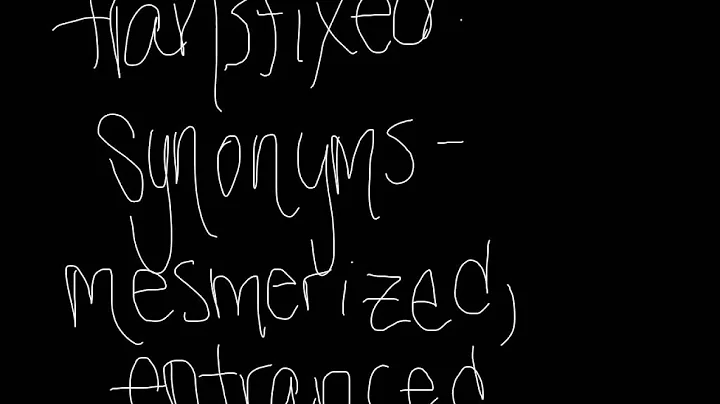 transfixed.
Synonyms -
mesmerized,
entranced